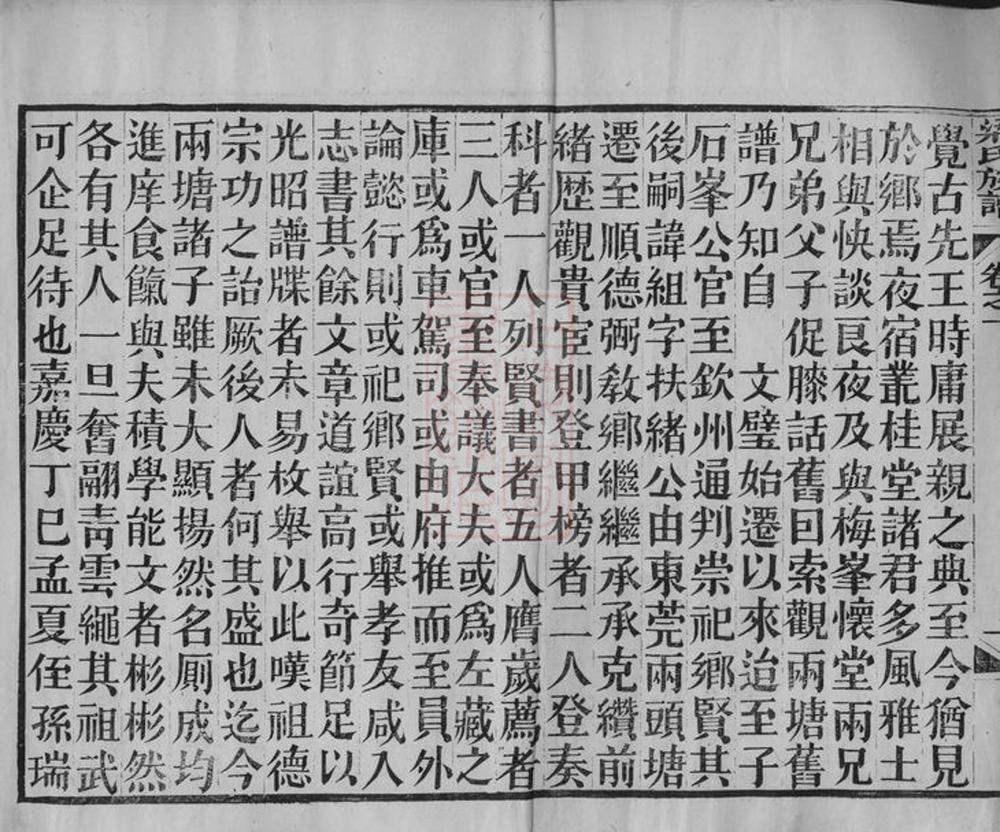 覺古先王時庸展親之典至今猶見
於鄉焉夜宿叢桂堂諸君多風雅士
相與快談艮夜及與梅峯懷堂兩兄
兄弟父子促膝話舊曰索觀兩塘舊
譜乃知自 文璧始遷以來迨至子
石峯公官至欽州通判崇祀鄉賢其
後嗣諱組字扶緒公由東莞兩頭塘
遷至順德弼敎鄉繼繼承承克纘前
緒歷觀貴宦則登甲榜者二人登奏
科者一人列賢書者五人膺歲薦者
三人或官至奉議大夫或爲左藏之
庫或爲車駕司或由府推而至員外
論懿行則或祀鄉賢或舉孝友咸入
志書其餘文章道誼高行奇節足以
光昭譜牒者未易枚舉以此嘆祖德
宗功之詒厥後人者何其盛也迄今
兩塘諸子雖未大顯揚然名厠成均
進庠食餼與夫積學能文者彬彬然
各有其人一旦奮翮靑雲繩其祖武
可企足待也嘉慶丁巳孟夏侄孫瑞